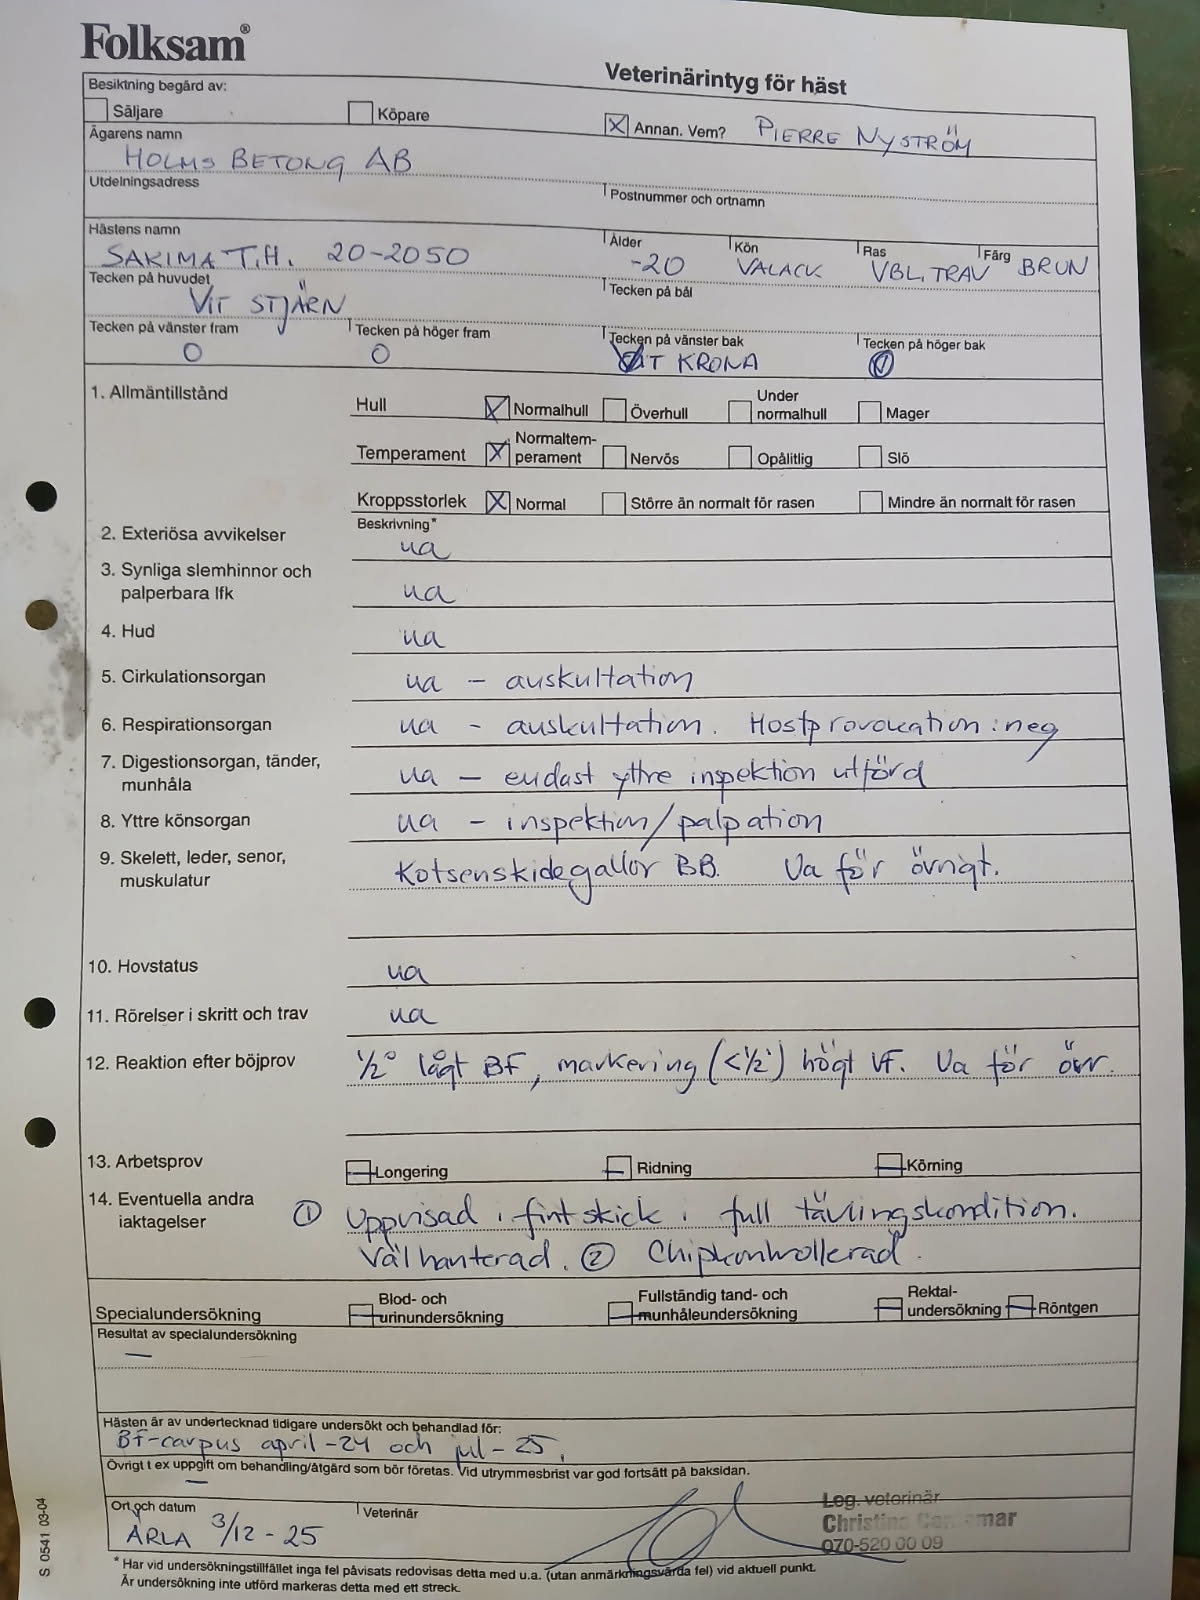 Folksam®
Veterinärintyg för häst
Besiktning begärd av:
Säljare Köpare Annan. Vem? PIERRE NYSTRÖM
Ägarens namn
HOLMS BETONG AB
Utdelningsadress Postnummer och ortnamn
Hästens namn Ålder Kön Ras Färg
SAKIMA T.H. 20-2050 -20 VALACK VBL. TRAV BRUN
Tecken på huvudet Tecken på bål
VIT STJÄRN
Tecken på vänster fram Tecken på höger fram Tecken på vänster bak Tecken på höger bak
0 0 VIT KRONA
1. Allmäntillstånd
Hull Normalhull Överhull Under normalhull Mager
Temperament Normaltem-perament Nervös Opålitlig Slö
Kroppsstorlek Normal Större än normalt för rasen Mindre än normalt för rasen
Beskrivning*
2. Exteriösa avvikelser ua
3. Synliga slemhinnor och
palperbara lfk ua
4. Hud ua
5. Cirkulationsorgan ua - auskultation
6. Respirationsorgan ua - auskultation. Hostprovokation: neg
7. Digestionsorgan, tänder,
munhåla ua - endast yttre inspektion utförd
8. Yttre könsorgan ua - inspektion/palpation
9. Skelett, leder, senor,
muskulatur Kotsenskidegallor BB. Ua för övrigt.
10. Hovstatus ua
11. Rörelser i skritt och trav ua
12. Reaktion efter böjprov 1/2° lågt BF, markering (<1/2°) högt VF. Ua för övr.
13. Arbetsprov Longering Ridning Körning
14. Eventuella andra
iaktagelser ① Uppvisad i fint skick i full tävlingskondition.
Välhanterad. ② Chipkontrollerad.
Specialundersökning Blod- och urinundersökning Fullständig tand- och munhåleundersökning Rektal-undersökning Röntgen
Resultat av specialundersökning
—
Hästen är av undertecknad tidigare undersökt och behandlad för:
BF-carpus april-24 och jul-25.
Övrigt t ex uppgift om behandling/åtgärd som bör företas. Vid utrymmesbrist var god fortsätt på baksidan.
—
Ort och datum Veterinär
ÄRLA 3/12-25
Leg. veterinär
Christina
070-520 00 09
* Har vid undersökningstillfället inga fel påvisats redovisas detta med u.a. (utan anmärkningsvärda fel) vid aktuell punkt.
Är undersökning inte utförd markeras detta med ett streck.
S 0541 03-04